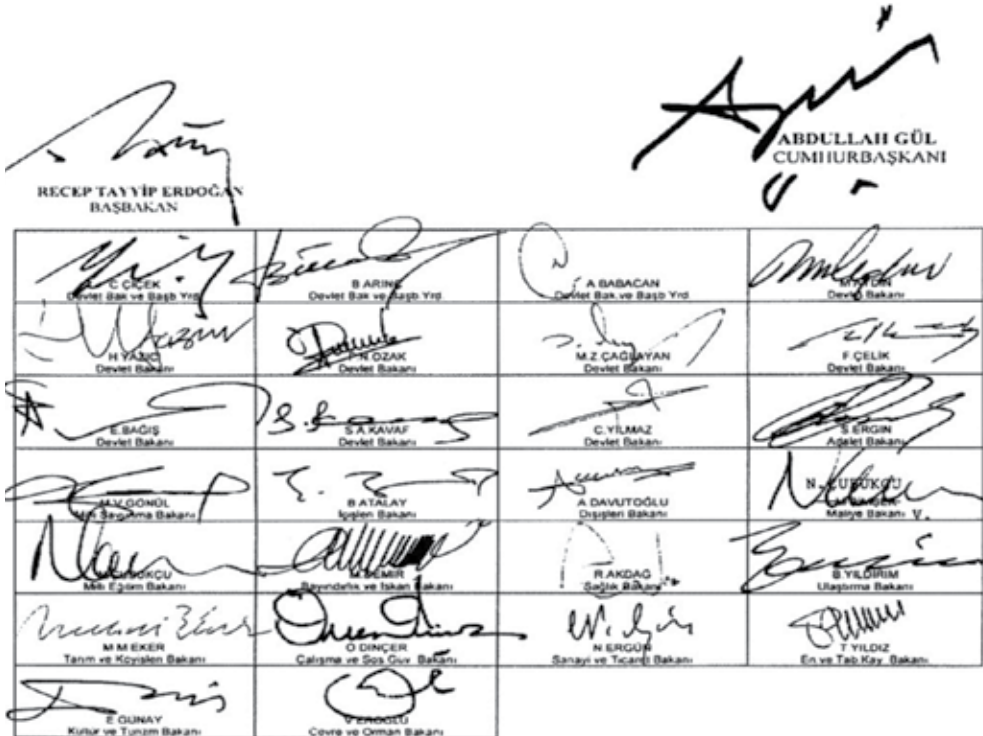 RECEP TAYYİP ERDOĞAN
BAŞBAKAN
ABDULLAH GÜL
CUMHURBAŞKANI
C ÇİÇEK
Devlet Bak ve Başb Yrd
B ARINÇ
Devlet Bak ve Başb Yrd
A BABACAN
Devlet Bak.ve Başb Yrd
M AYDIN
Devlet Bakanı
H YAZICI
Devlet Bakanı
F N.ÖZAK
Devlet Bakanı
M.Z.ÇAĞLAYAN
Devlet Bakanı
F.ÇELİK
Devlet Bakanı
E.BAĞIŞ
Devlet Bakanı
S A KAVAF
Devlet Bakanı
C.YILMAZ
Devlet Bakanı
S.ERGİN
Adalet Bakanı
M.V.GÖNÜL
Milli Savunma Bakanı
B ATALAY
İçişleri Bakanı
A DAVUTOĞLU
Dışişleri Bakanı
N. ÇUBUKÇU
Maliye Bakanı V.
N ÇUBUKÇU
Milli Eğitim Bakanı
M DEMİR
Bayındırlık ve İskan Bakanı
R AKDAĞ
Sağlık Bakanı
B.YILDIRIM
Ulaştırma Bakanı
M M EKER
Tarım ve Köyişleri Bakanı
Ö DİNÇER
Çalışma ve Sos Güv Bakanı
N ERGÜN
Sanayi ve Ticaret Bakanı
T YILDIZ
En.ve Tab.Kay. Bakanı
E GÜNAY
Kültür ve Turizm Bakanı
V EROĞLU
Çevre ve Orman Bakanı